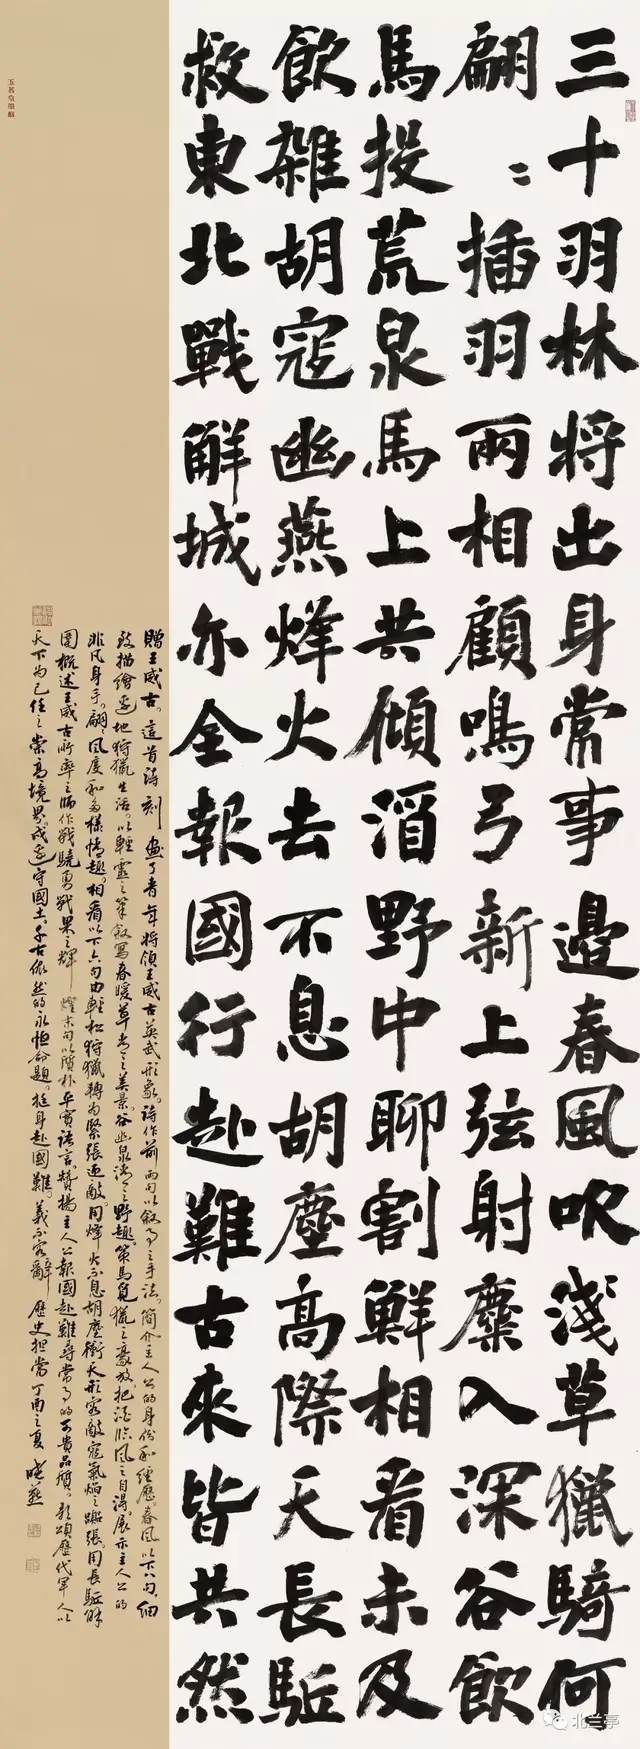 三十羽林将出身常事邊春風吹淺草獵騎何
翩〻插羽兩相顧鳴弓新上弦射麋入深谷飲
馬投荒泉馬上共傾酒野中聊割鮮相看未及
飲雜胡寇幽燕烽火去不息胡塵高際天長駈
救東北戰解城亦全報國行赴難古來皆共然
贈王威古。這首詩刻畫了青年将領王威古英武形象。詩作前兩句以敘事之手法。簡介主人公的身份和經歷。春風以下八句。細
致描繪邊地狩獵生活。以輕靈之筆敘寫春暖草青之美景。谷幽泉清之野趣。策馬覓獵之豪放。把酒臨風之自得。展示主人公的
非凡身手。翩〻風度和多樣情趣。相看以下六句由輕松狩獵轉为緊張迎敵。用烽火不息胡塵衝天形容敵寇氣焰之囂張。用長駈解
圍概述王威古所率之師作戰驍勇戰果之輝煌末句以質朴平實語言。贊揚主人公報國赴難尋常事的可貴品質。歌頌歷代軍人以
天下为己任之崇高境界。戍邊守國土。千古依然的永恒命題。挺身赴國難。義不容辭 歷史担當 丁酉之夏 曉燕
北兰亭